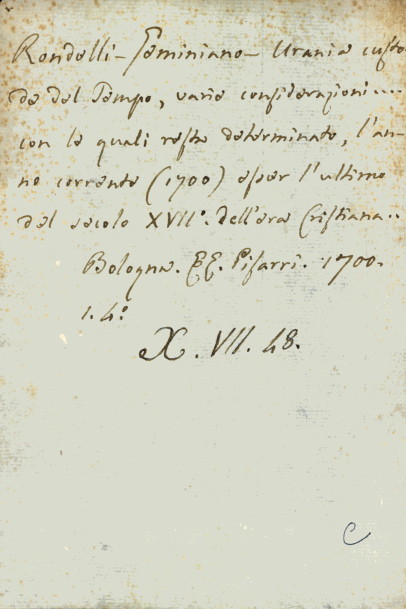 Rondelli - Geminiano - Urania custo
de del Tempo, varie considerazioni....
con le quali resta determinato, l'an-
no corrente (1700) esser l'ultimo
del secolo XVII°. dell'era Cristiana..
Bologna. EE. Pisarri. 1700.
1. 4°
X. VII. 48.
C